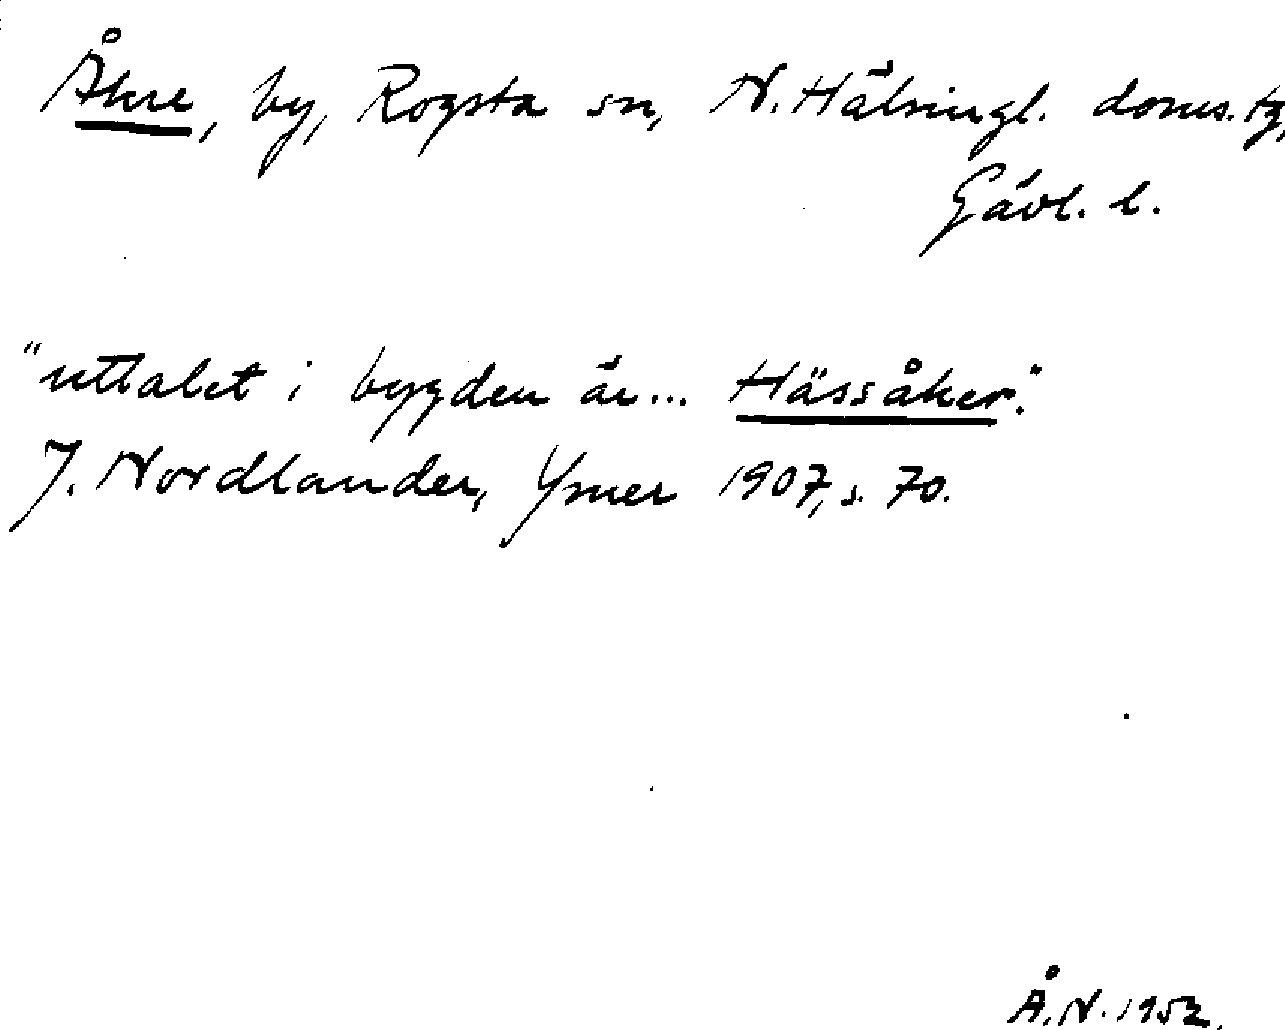 Åkre, by, Rogsta sn, N. Hälsingl. doms. tg,
Gävl. l.
"uttalet i bygden är... Hässåker."
J. Nordlander, Ymer 1907, s. 70.
Å.N. 1952.